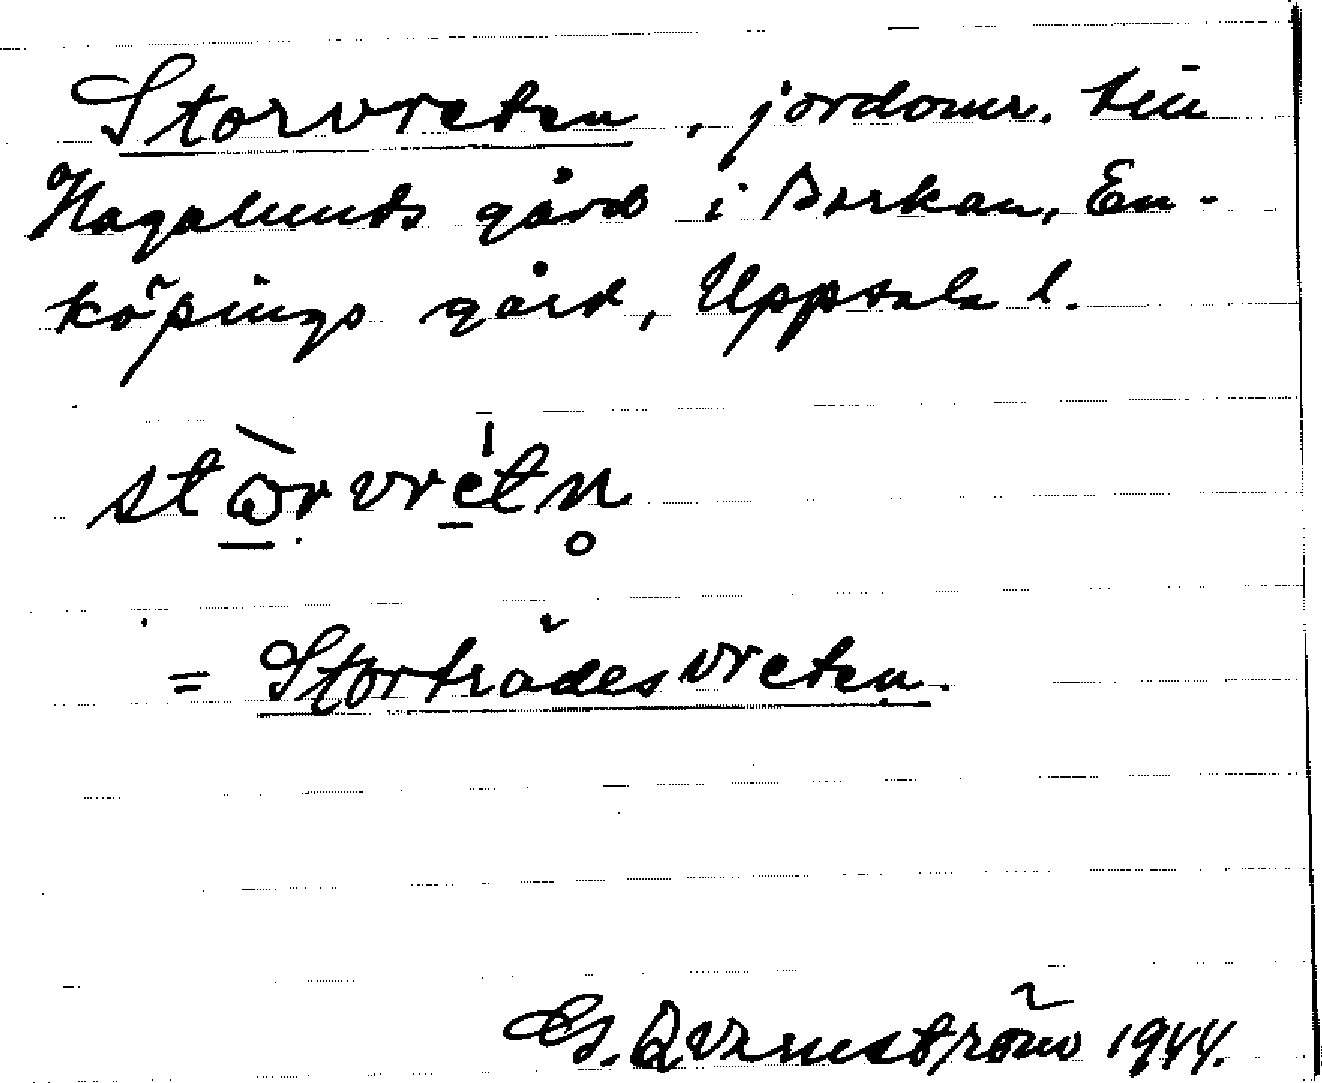 Storvreten, jordomr. till
Hagalunds gård i Dorkan, En-
köpings gård, Uppsala l.
stòrvrétn̥
= Storträdesvreten.
G. Qvarnström 1944.